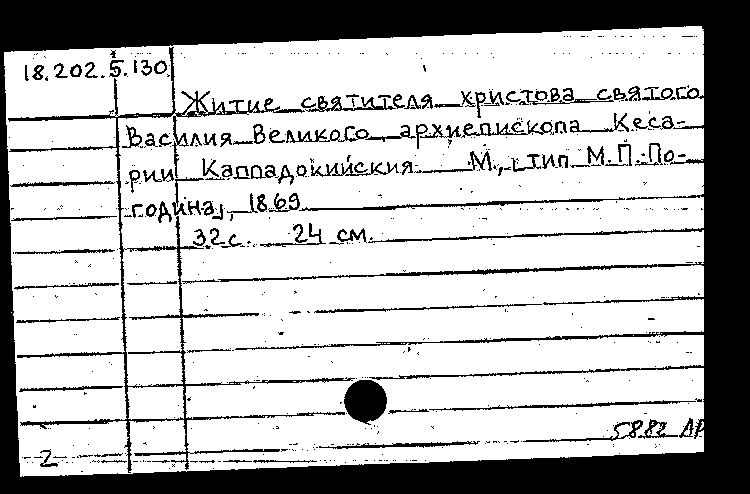 18.202.5.130
Житие святителя христова святого
Василия Великого, архиепископа Кеса-
рии Каппадокийския. М., [тип. М.П. По-
година], 1869
32 с. 24 см.
5882 АР
2